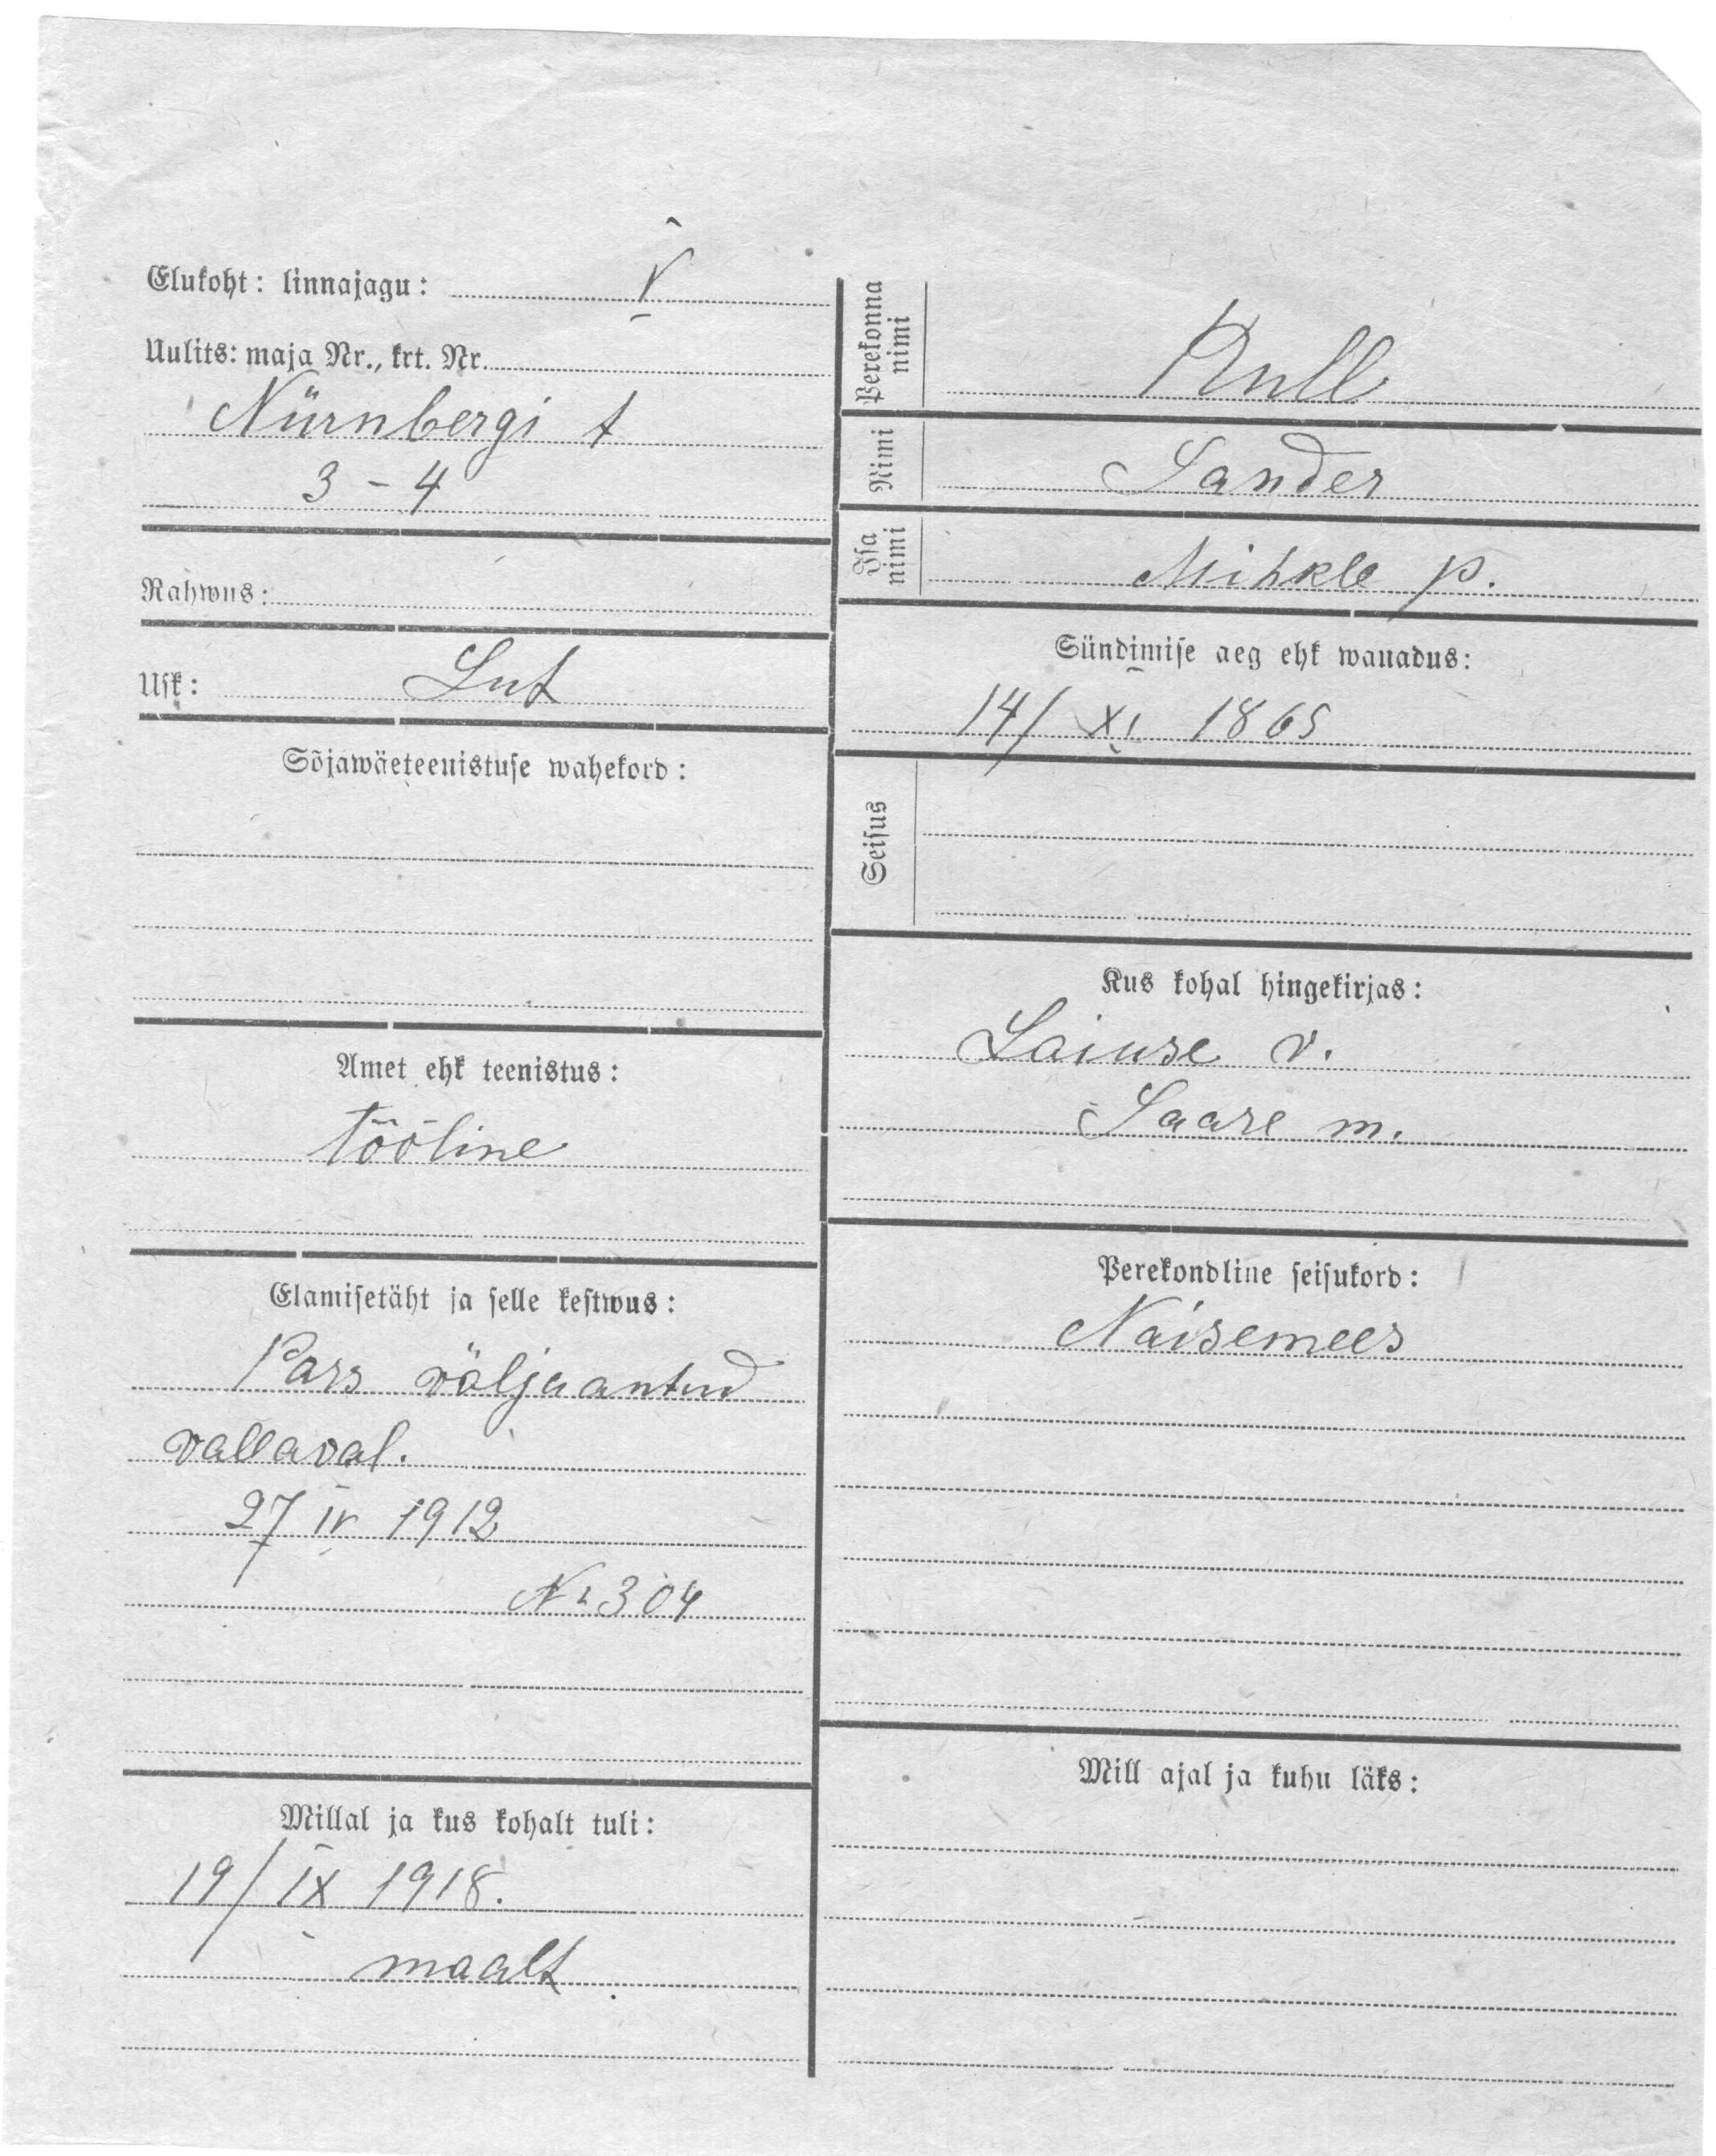 Elukoht: linnajagu: V
Uulits: maja Nr., krt. Nr.
Nürnbergi t
3 - 4
Rahwus:
Usk: Lut
Sõjawäeteenistuse wahekord:
Amet ehk teenistus:
tööline
Elamisetäht ja selle kestwus:
Pass väljaantud
vallaval.
27 IV 1912
№ 304
Millal ja kus kohalt tuli:
19/IX 1918.
maalt
Perekonna nimi
Rull
Nimi
Sander
Isa nimi
Mihkle p.
Sündimise aeg ehk wanadus:
14/ XI 1865
Seisus
Kus kohal hingekirjas:
Laiuse v.
Saare m.
Perekondline seisukord:
Naisemees
Mill ajal ja kuhu läks: